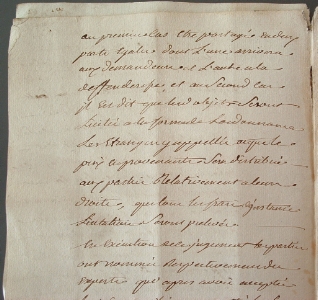 au premier cas être partagée en deux
parts égales dont l'une arrivera
aux demandeurs et l'autre à la
deffenderesse et au second cas
il est dit que les objets seront
licités à la forme de l'ordonnance
les Etrangers y appellés auquel le
prix en provenant sera distribué
aux parties Relativement à leurs
droits, que tous les frais d'instance
licitation seront prélevés.
En Exécution de ce jugement les parties
ont nommé respectivement des
experts qui après avoir accepté